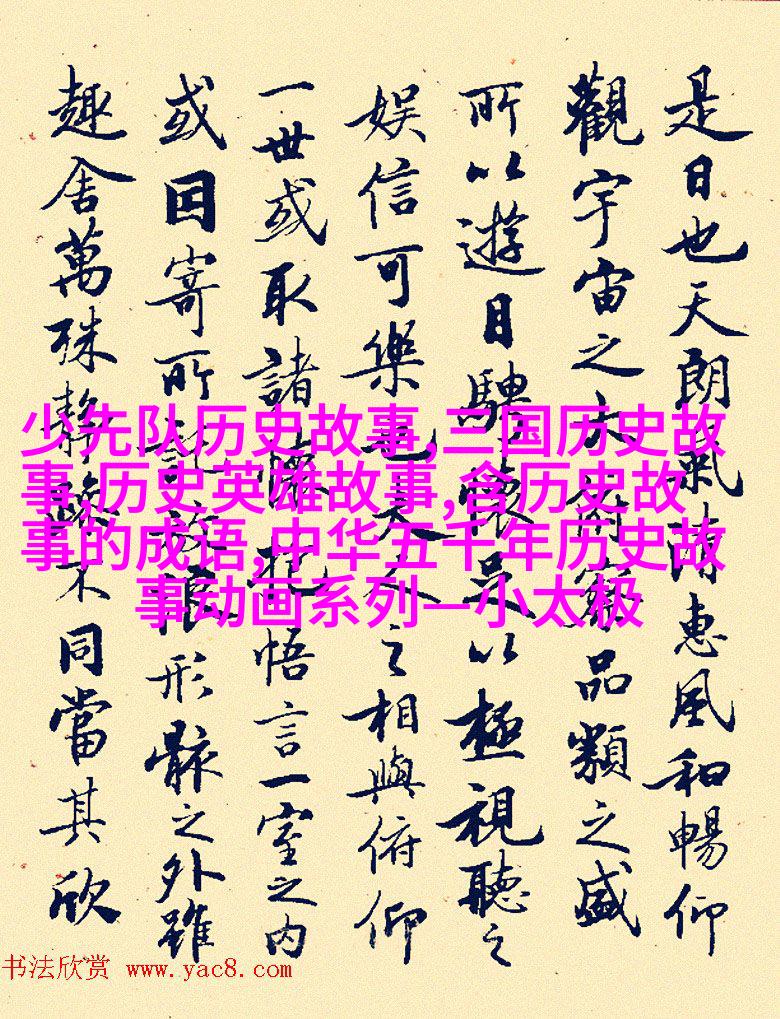 是日也天朗氣清惠風和暢仰
觀宇宙之大俯察品類之盛
所以遊目騁懷足以極視聽之
娛信可樂也夫人之相與俯仰
一世或取諸懷抱悟言一室之內
或因寄所託放浪形骸之外雖
趣舍萬殊靜躁不同當其欣
少先队历史故事,三国历史故
事,历史英雄故事,含历史故
事的成语,中华五千年历史故
事动画系列—小太极
书法欣赏 www.yac8.com